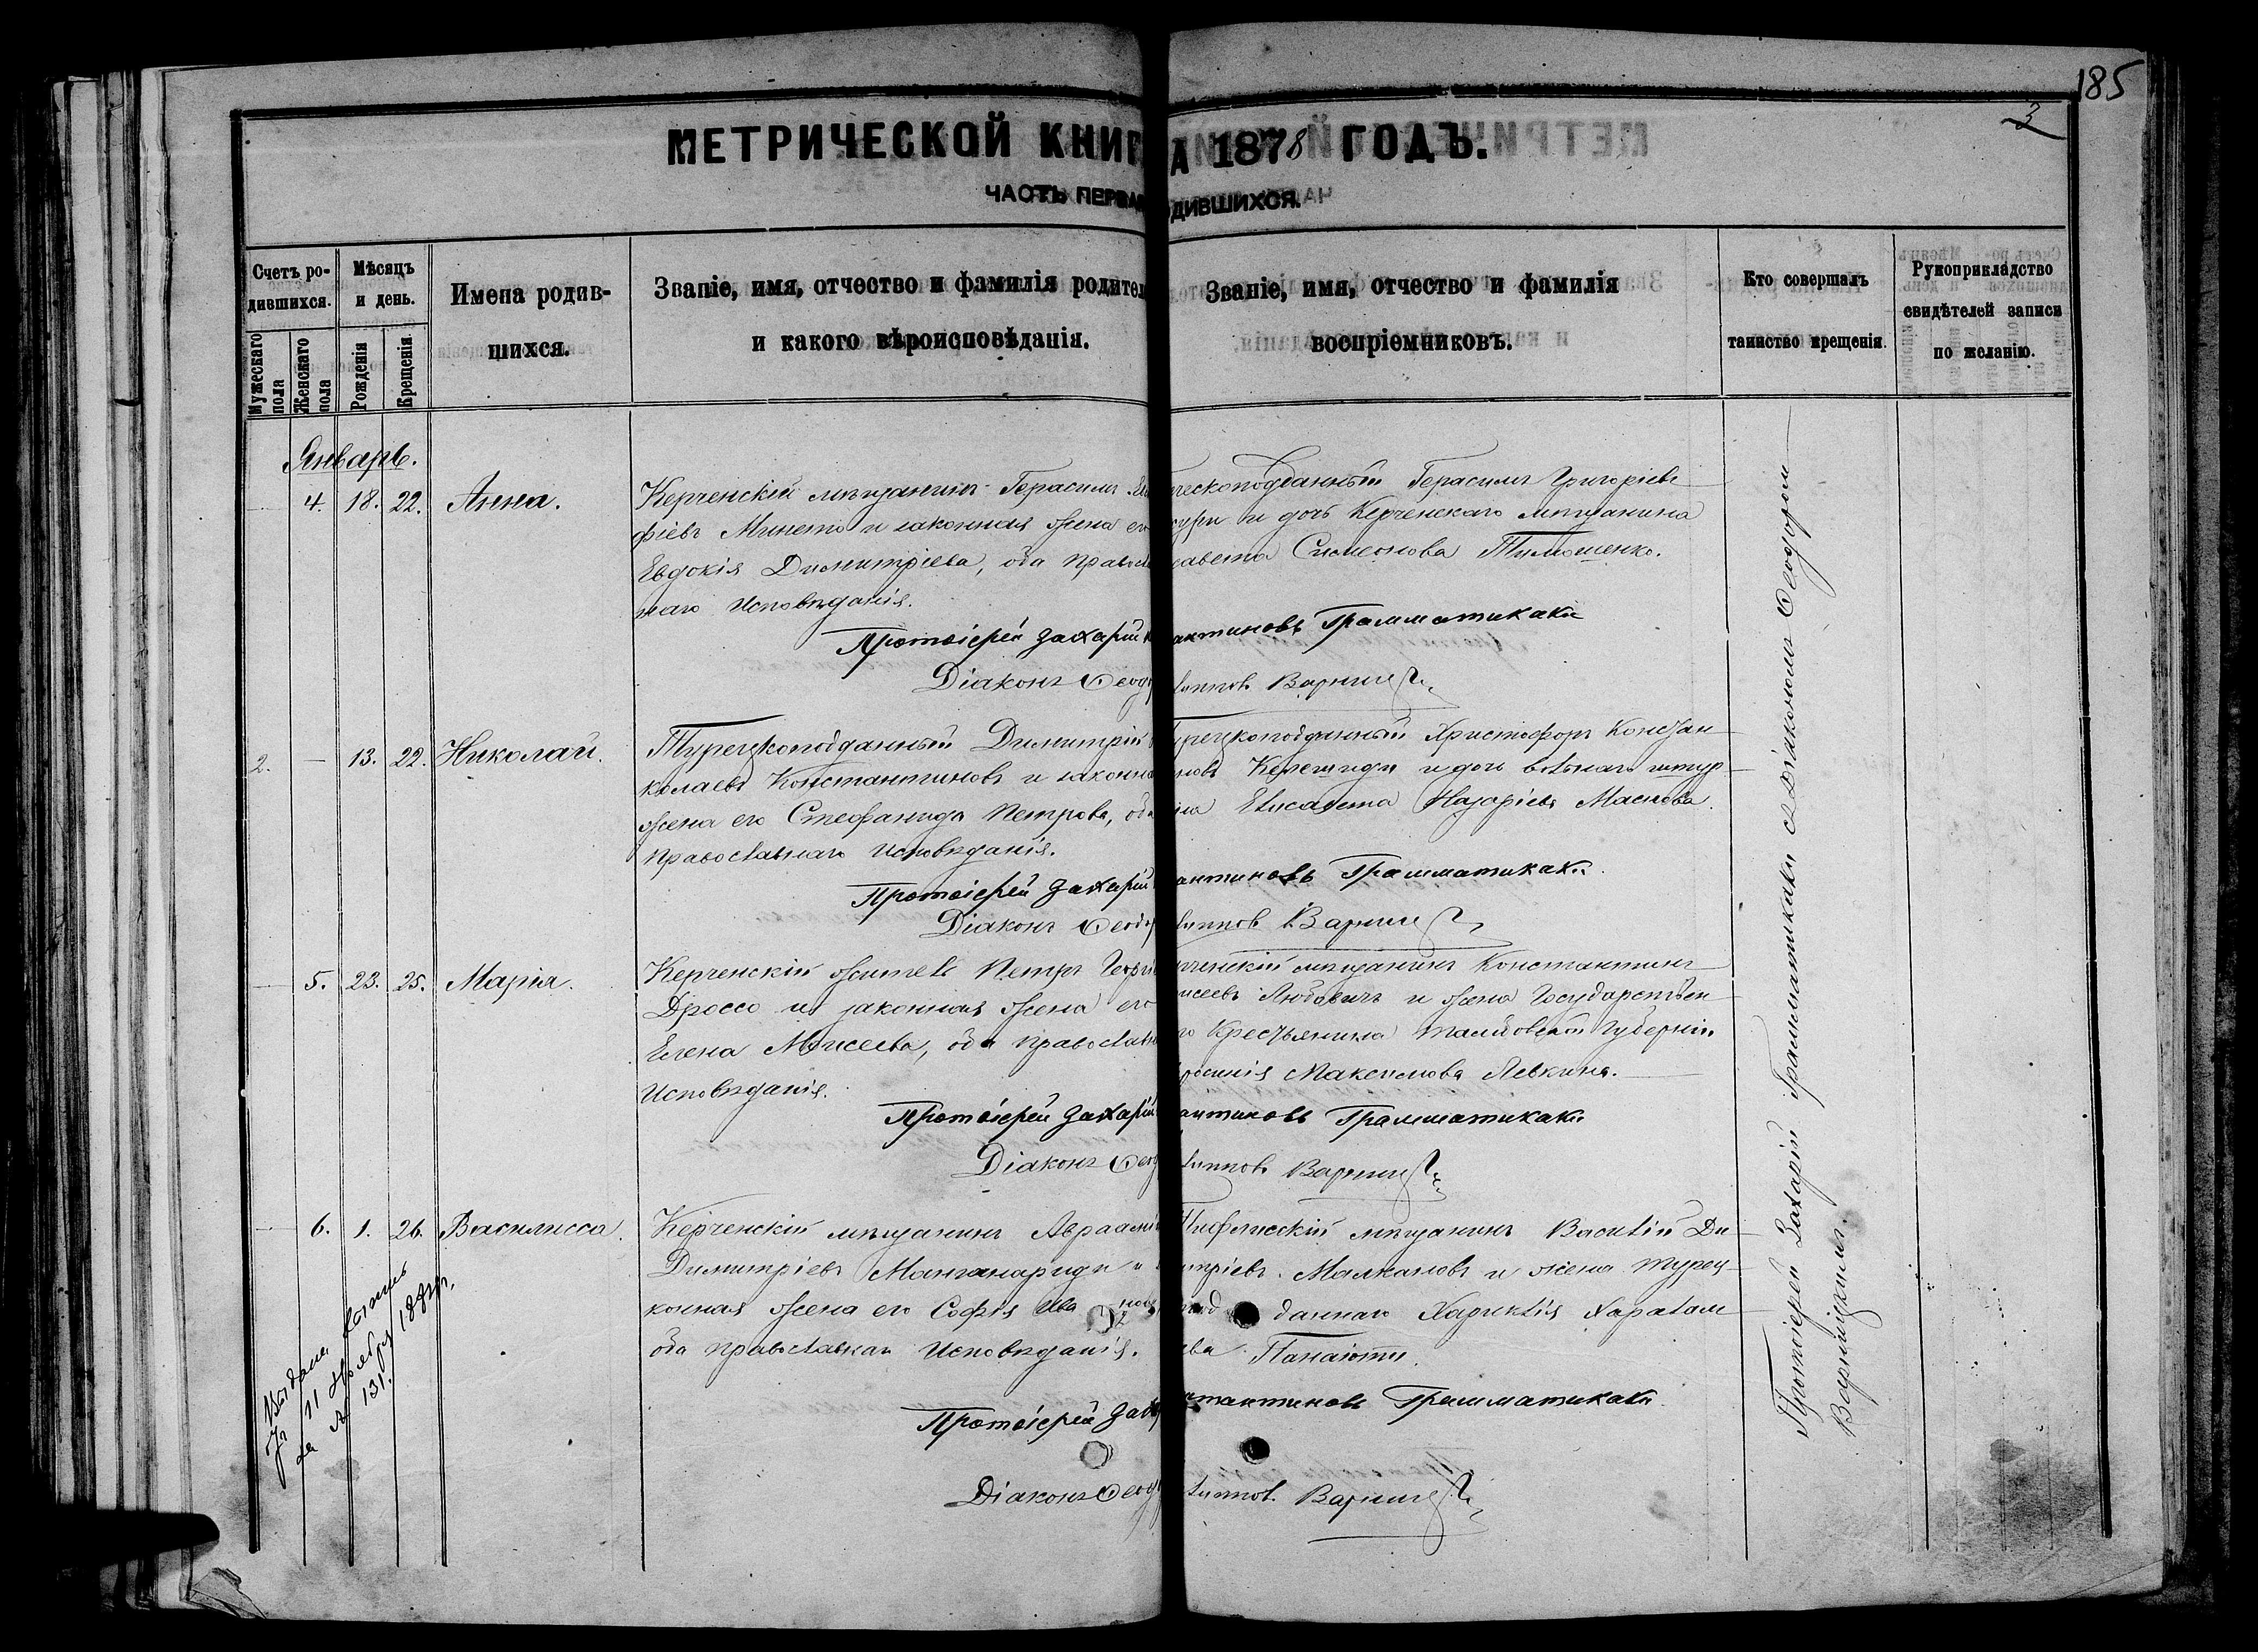 185
3
МЕТРИЧЕСКОЙ КНИГ
А 1878 ГОДЪ.
ЧАСТЬ ПЕРВАЯ
ДИВШИХСЯ.
Счетъ родившихся.
Мужескаго пола
Женскаго пола
Мѣсяцъ и день.
Рожденія
Крещенія.
Имена родившихся.
Званіе, имя, отчество и фамилія родител
и какого вѣроисповѣданія.
Званіе, имя, отчество и фамилія
воспріемниковъ.
Кто совершалъ
таинство крещенія.
Рукоприкладство
свидѣтелей записи
по желанію.
Январь.
4. 18. 22. Анна.
Керченскій мѣщанинъ Герасимъ
фіевъ Минето и законная жена его
Евдокія Димитріева, оба правосл
наго Исповѣданія.
ческоподданный Герасимъ Григоріевъ
ури и дочь Керченскаго мѣщанина
савета Симеонова Тимошенко.
Протоіерей Захарій К
антиновъ Грамматикаки
Діаконъ Ѳеод
липпов. Варниц
2. — 13. 22. Николай.
Турецкоподданный Димитрій
колаевъ Константиновъ и законна
жена его Стефанида Петрова, оба
Православнаго Исповѣданія.
урецкоподданный Христофоръ Констан
новъ Келешиди и дочь вольнаго штур
на Елисавета Назаріева Маслова.
Протоіерей Захарій
антиновъ Грамматикаки.
Діаконъ Ѳеод
липпов Варниц
5. 23. 25. Марія.
Керченскій житель Петръ Георгі
Дроссо и законная жена его
Елена Моисеева, оба православн
Исповѣданія.
рченскій мѣщанинъ Константинъ
исеевъ Любовичъ и жена Государствен
го Крестьянина Тамбовской Губерніи
росинія Максимова Левкина.
Протоіерей Захарій
антиновъ Грамматикаки
Діаконъ Ѳеод
липпов. Варниц
6. 1. 26. Василисса.
Керченскій мѣщанинъ Авраамі
Димитріевъ Манганариди и
конная жена его Софія Ива нова
оба православнаго Исповѣданія.
Тифлисскій мѣщанинъ Василій Ди
митріевъ Малкановъ и жена Турец
под даннаго Хариклія Харалам
ева Панаіоти.
Протоіерей Зах
стантиновъ Грамматикаки.
Діаконъ Ѳеод
липпов. Варниц
Выдана
11 Ноября 188
за № 131.
Протоіерей Захарій Грамматикаки съ діакономъ Ѳеодоромъ
Варницкимъ.